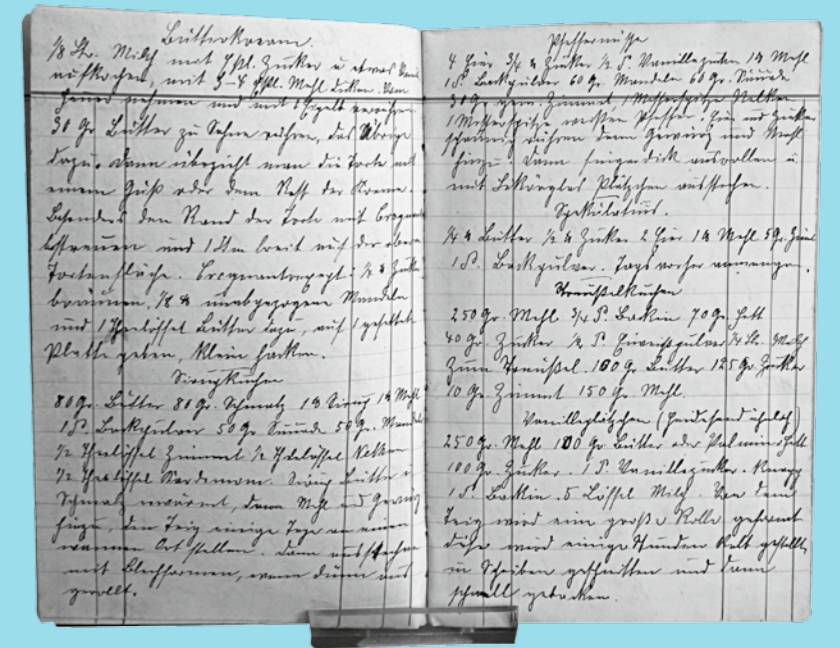 Butterkreem.
1/8 Ltr. Milch mit 2 Eßl. Zucker u etwas
aufkochen, mit 3-4 Eßl. Mehl dicken. Vom
Feuer nehmen und mit 1 Eigelb verrühren.
30 Gr Butter zu Sahne rühren, das Übrige
dazu. Dann überzieht man die Torte mit
einem Guß oder dem Rest der Kreme.
Besonders den Rand der Torte mit
bestreuen und 1 Ctm breit auf der obern
Tortenfläche. 1/2 ℔ Zucker
bräunen, 1/8 ℔ unabgezogene Mandeln
und 1 Theelöffel Butter dazu, auf 1 gefettete
Platte geben, klein hacken.
Sirupkuchen
80 Gr. Butter 80 Gr. Schmalz 1 ℔ Sirup 1 ℔ Mehl
1 P. Backpulver 50 Gr. Sukade 50 Gr. Mandeln
1/2 Theelöffel Zimmet 1/2 Theelöffel Nelken
1/2 Theelöffel Kardemom. Sirup Butter u
Schmalz erwärmt, dann Mehl und Gewürz
hinzu, den Teig einige Tage an einen
warmen Ort stellen. Dann ausstechen
mit Blechformen, wenn dünn aus
gerollt.
Pfeffernüsse
4 Eier 3/4 ℔ Zucker 1/2 P. Vanillezucker 1 ℔ Mehl
1 P. Backpulver 60 Gr. Mandeln 60 Gr. Sukade
Gr. gem. Zimmet 1 Messerspitze Nelken
1 Messerspitze weißen Pfeffer. Eier und Zucker
schaumig rühren dann Gewürz und Mehl
hinzu. Dann fingerdick ausrollen u
mit Likörglas Plätzchen ausstechen.
Spekulatius.
1/4 ℔ Butter 1/2 ℔ Zucker 2 Eier 1 ℔ Mehl 5 Gr. Zimt
1 P. Backpulver. Tags vorher anmengen.
Streußelkuchen
250 Gr. Mehl 3/4 P. Backin 70 Gr. Fett
40 Gr. Zucker 1/2 P. Eiweißpulver 1/4 Ltr. Milch
Zum Streußel. 100 Gr Butter 125 Gr. Zucker
10 Gr. Zimmt 150 Gr. Mehl.
Vanilleplätzchen (Heidesand ähnlich)
250 Gr. Mehl 100 Gr Butter oder Palmin Fett
100 Gr. Zucker. 1 P. Vanillezucker. Knapp
1 P. Backin. 5 Löffel Milch. Von dem
Teig wird eine große Rolle geformt
diese wird einige Stunden kalt gestellt,
in Scheiben geschnitten und dann
schnell gebacken.